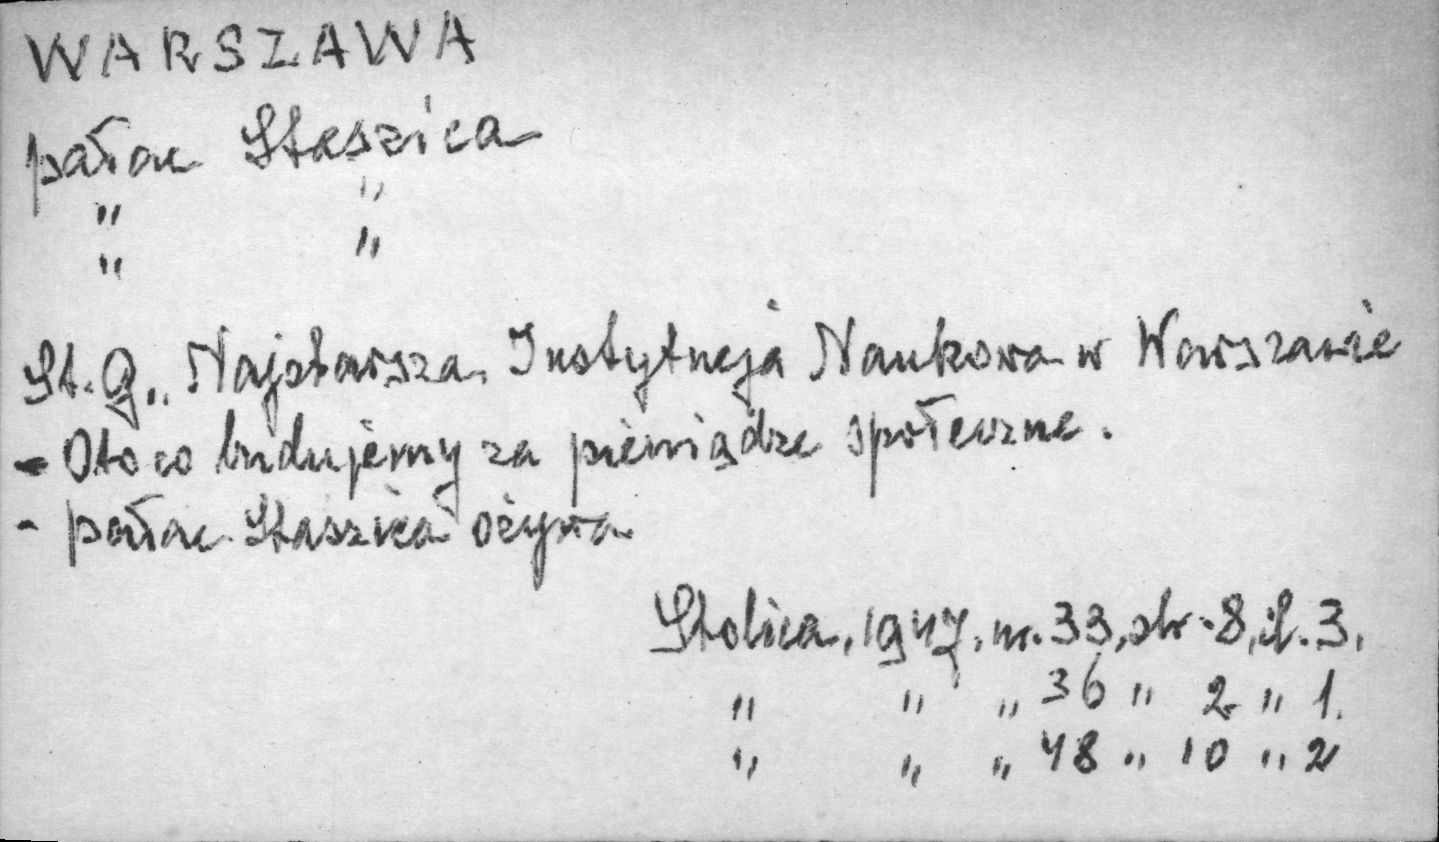 WARSZAWA
pałac Staszica
" "
" "
St. G., Najstarsza Instytucja Naukowa w Warszawie
- Oto co budujemy za pieniądze społeczne.
- pałac Staszica ożywa
Stolica, 1947, nr. 33, str. 8, il. 3.
" " " 36 " 2 " 1.
" " " 48 " 10 " 2